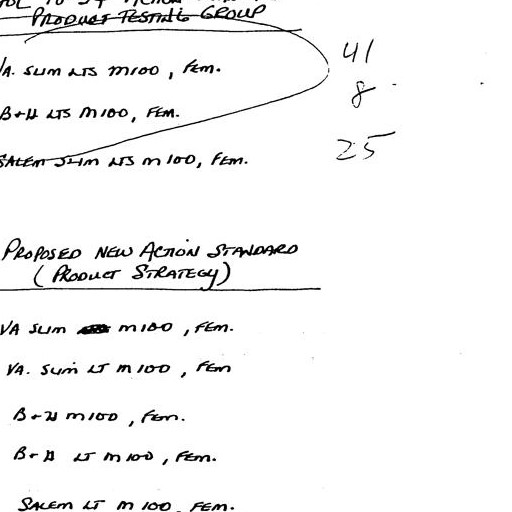 PRODUCT TESTING GROUP
VA. SLIM LTS M100, FEM. 41
B+H LTS M100, FEM. 8
SALEM SLIM LTS M100, FEM. 25
PROPOSED NEW ACTION STANDARD
(PRODUCT STRATEGY)
VA SLIM M100, FEM.
VA. SLIM LT M100, FEM
B+H M100, FEM.
B+H LT M100, FEM.
SALEM LT M100, FEM.